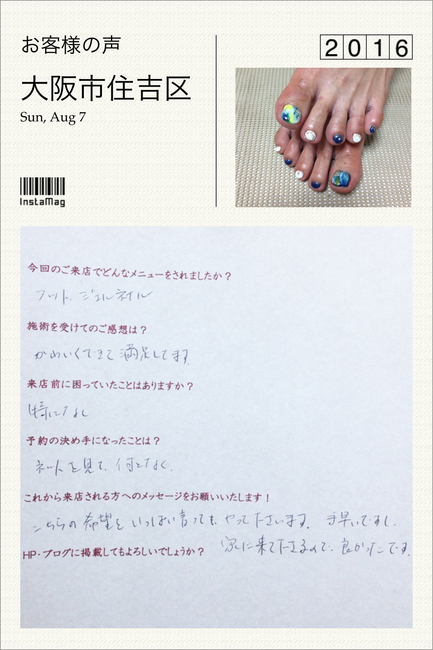 お客様の声
2016
大阪市住吉区
Sun, Aug 7
InstaMag
今回のご来店でどんなメニューをされましたか？
フット、ジェルネイル
施術を受けてのご感想は？
かわいくできて満足してます。
来店前に困っていたことはありますか？
特になし
予約の決め手になったことは？
ネットを見て、何となく。
これから来店される方へのメッセージをお願いいたします！
こちらの希望をいっぱい言っても、やって下さいます。手早いですし、
HP・ブログに掲載してもよろしいでしょうか？
家に来て下さるので、良かったです。